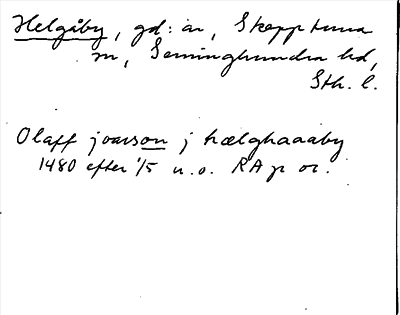 Helgåby, gd: ar, Skepptuna
sn, Seminghundra hd,
Sth. l.
Olaff joarson j hælghaaaby
1480 efter 1/5 u.o. RA p or.